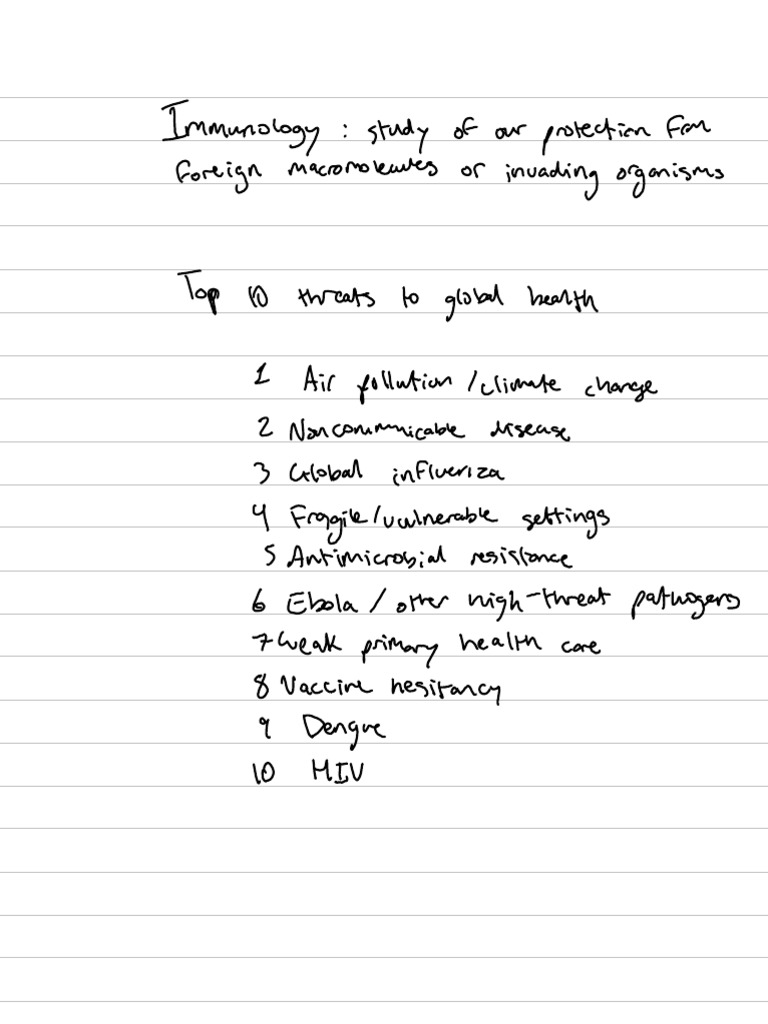 Immunology : study of our protection from
foreign macromolecules or invading organisms
Top 10 threats to global health
1 Air pollution / climate change
2 Noncommunicable disease
3 Global influenza
4 Fragile/vulnerable settings
5 Antimicrobial resistance
6 Ebola / other high-threat pathogens
7 Weak primary health care
8 Vaccine hesitancy
9 Dengue
10 HIV